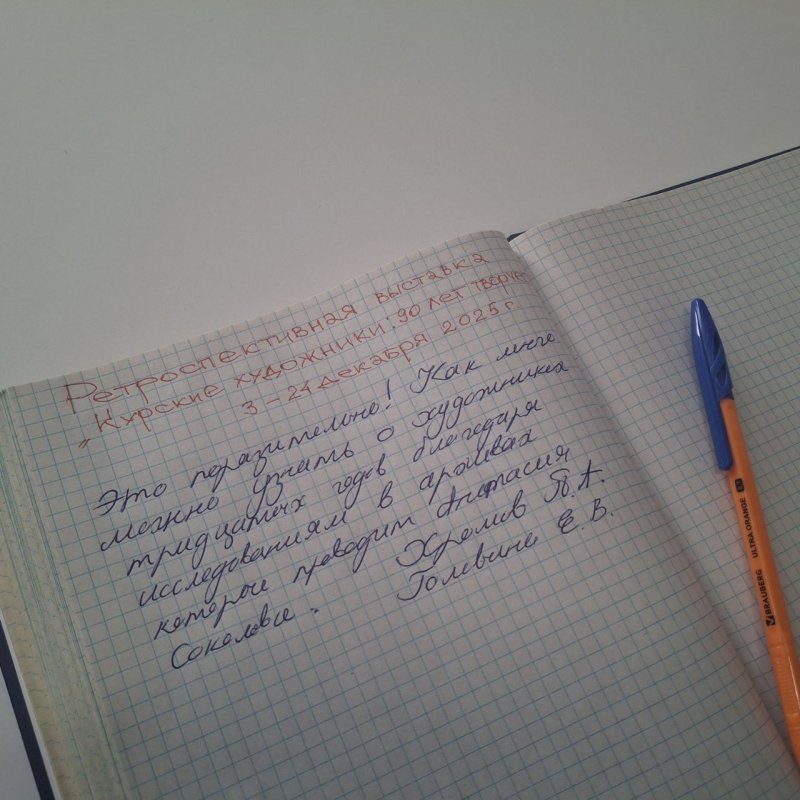 Ретроспективная выставка
"Курские художники: 90 лет творчес
3 – 24 декабря 2025 г.
Это поразительно! Как много
можно узнать о художниках
тридцатых годов благодаря
исследованиям в архивах
которые проводит Анастасия
Соколова.
Хремов П.А.
Головина Е.В.
BRAUBERG ULTRA ORANGE